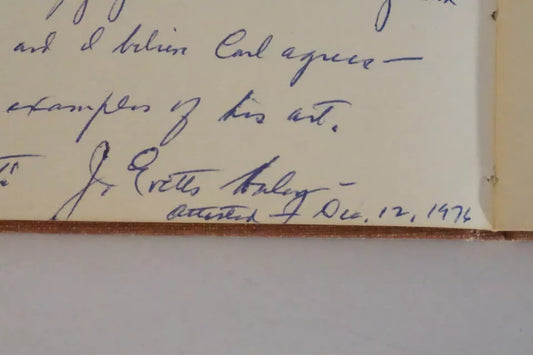 and I believe Carl agrees—
examples of his art.
J. Evetts Haley—
attested — Dec. 12, 1976